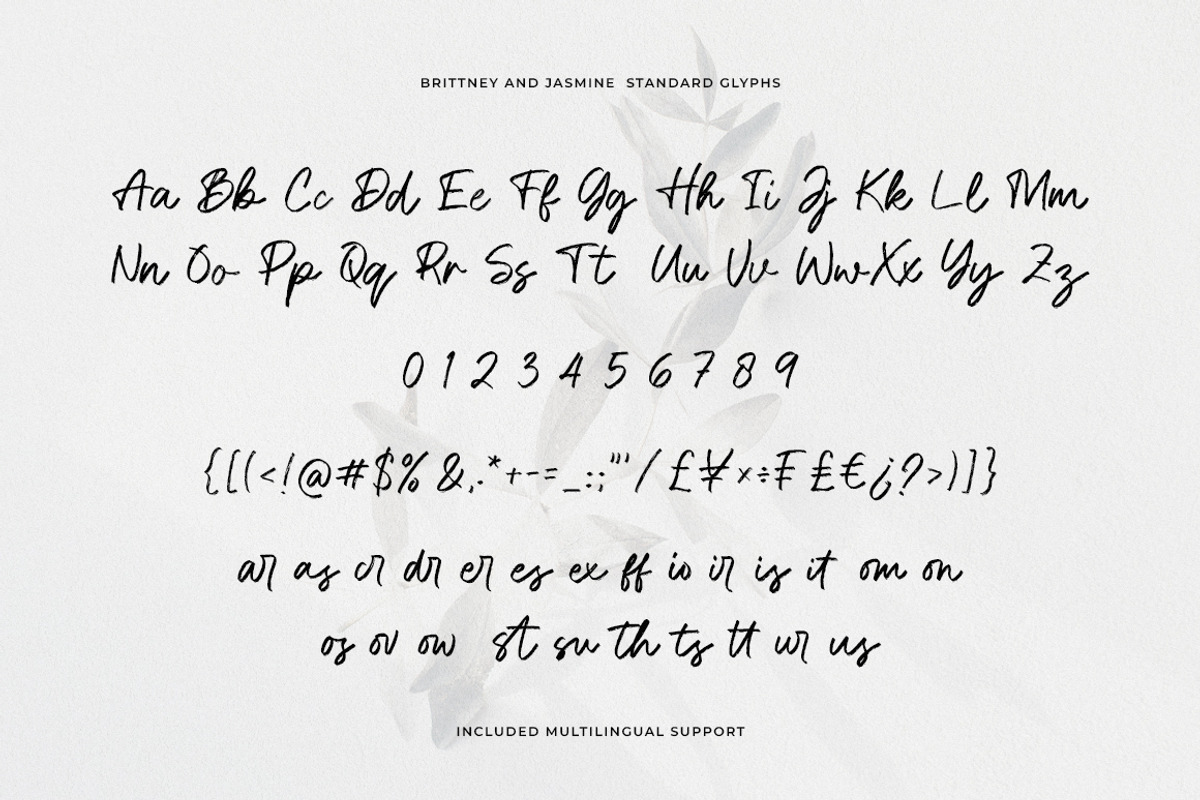 BRITTNEY AND JASMINE STANDARD GLYPHS
Aa Bb Cc Dd Ee Ff Gg Hh Ii Jj Kk Ll Mm
Nn Oo Pp Qq Rr Ss Tt Uu Vv Ww Xx Yy Zz
0 1 2 3 4 5 6 7 8 9
{[(<!@#$%&,.*+-=_:;"'/£¥×÷₣₤€¿?>)]}
ar as cr dr er es ex ff io ir is it om on
os ov ow st su th ts tt ur us
INCLUDED MULTILINGUAL SUPPORT